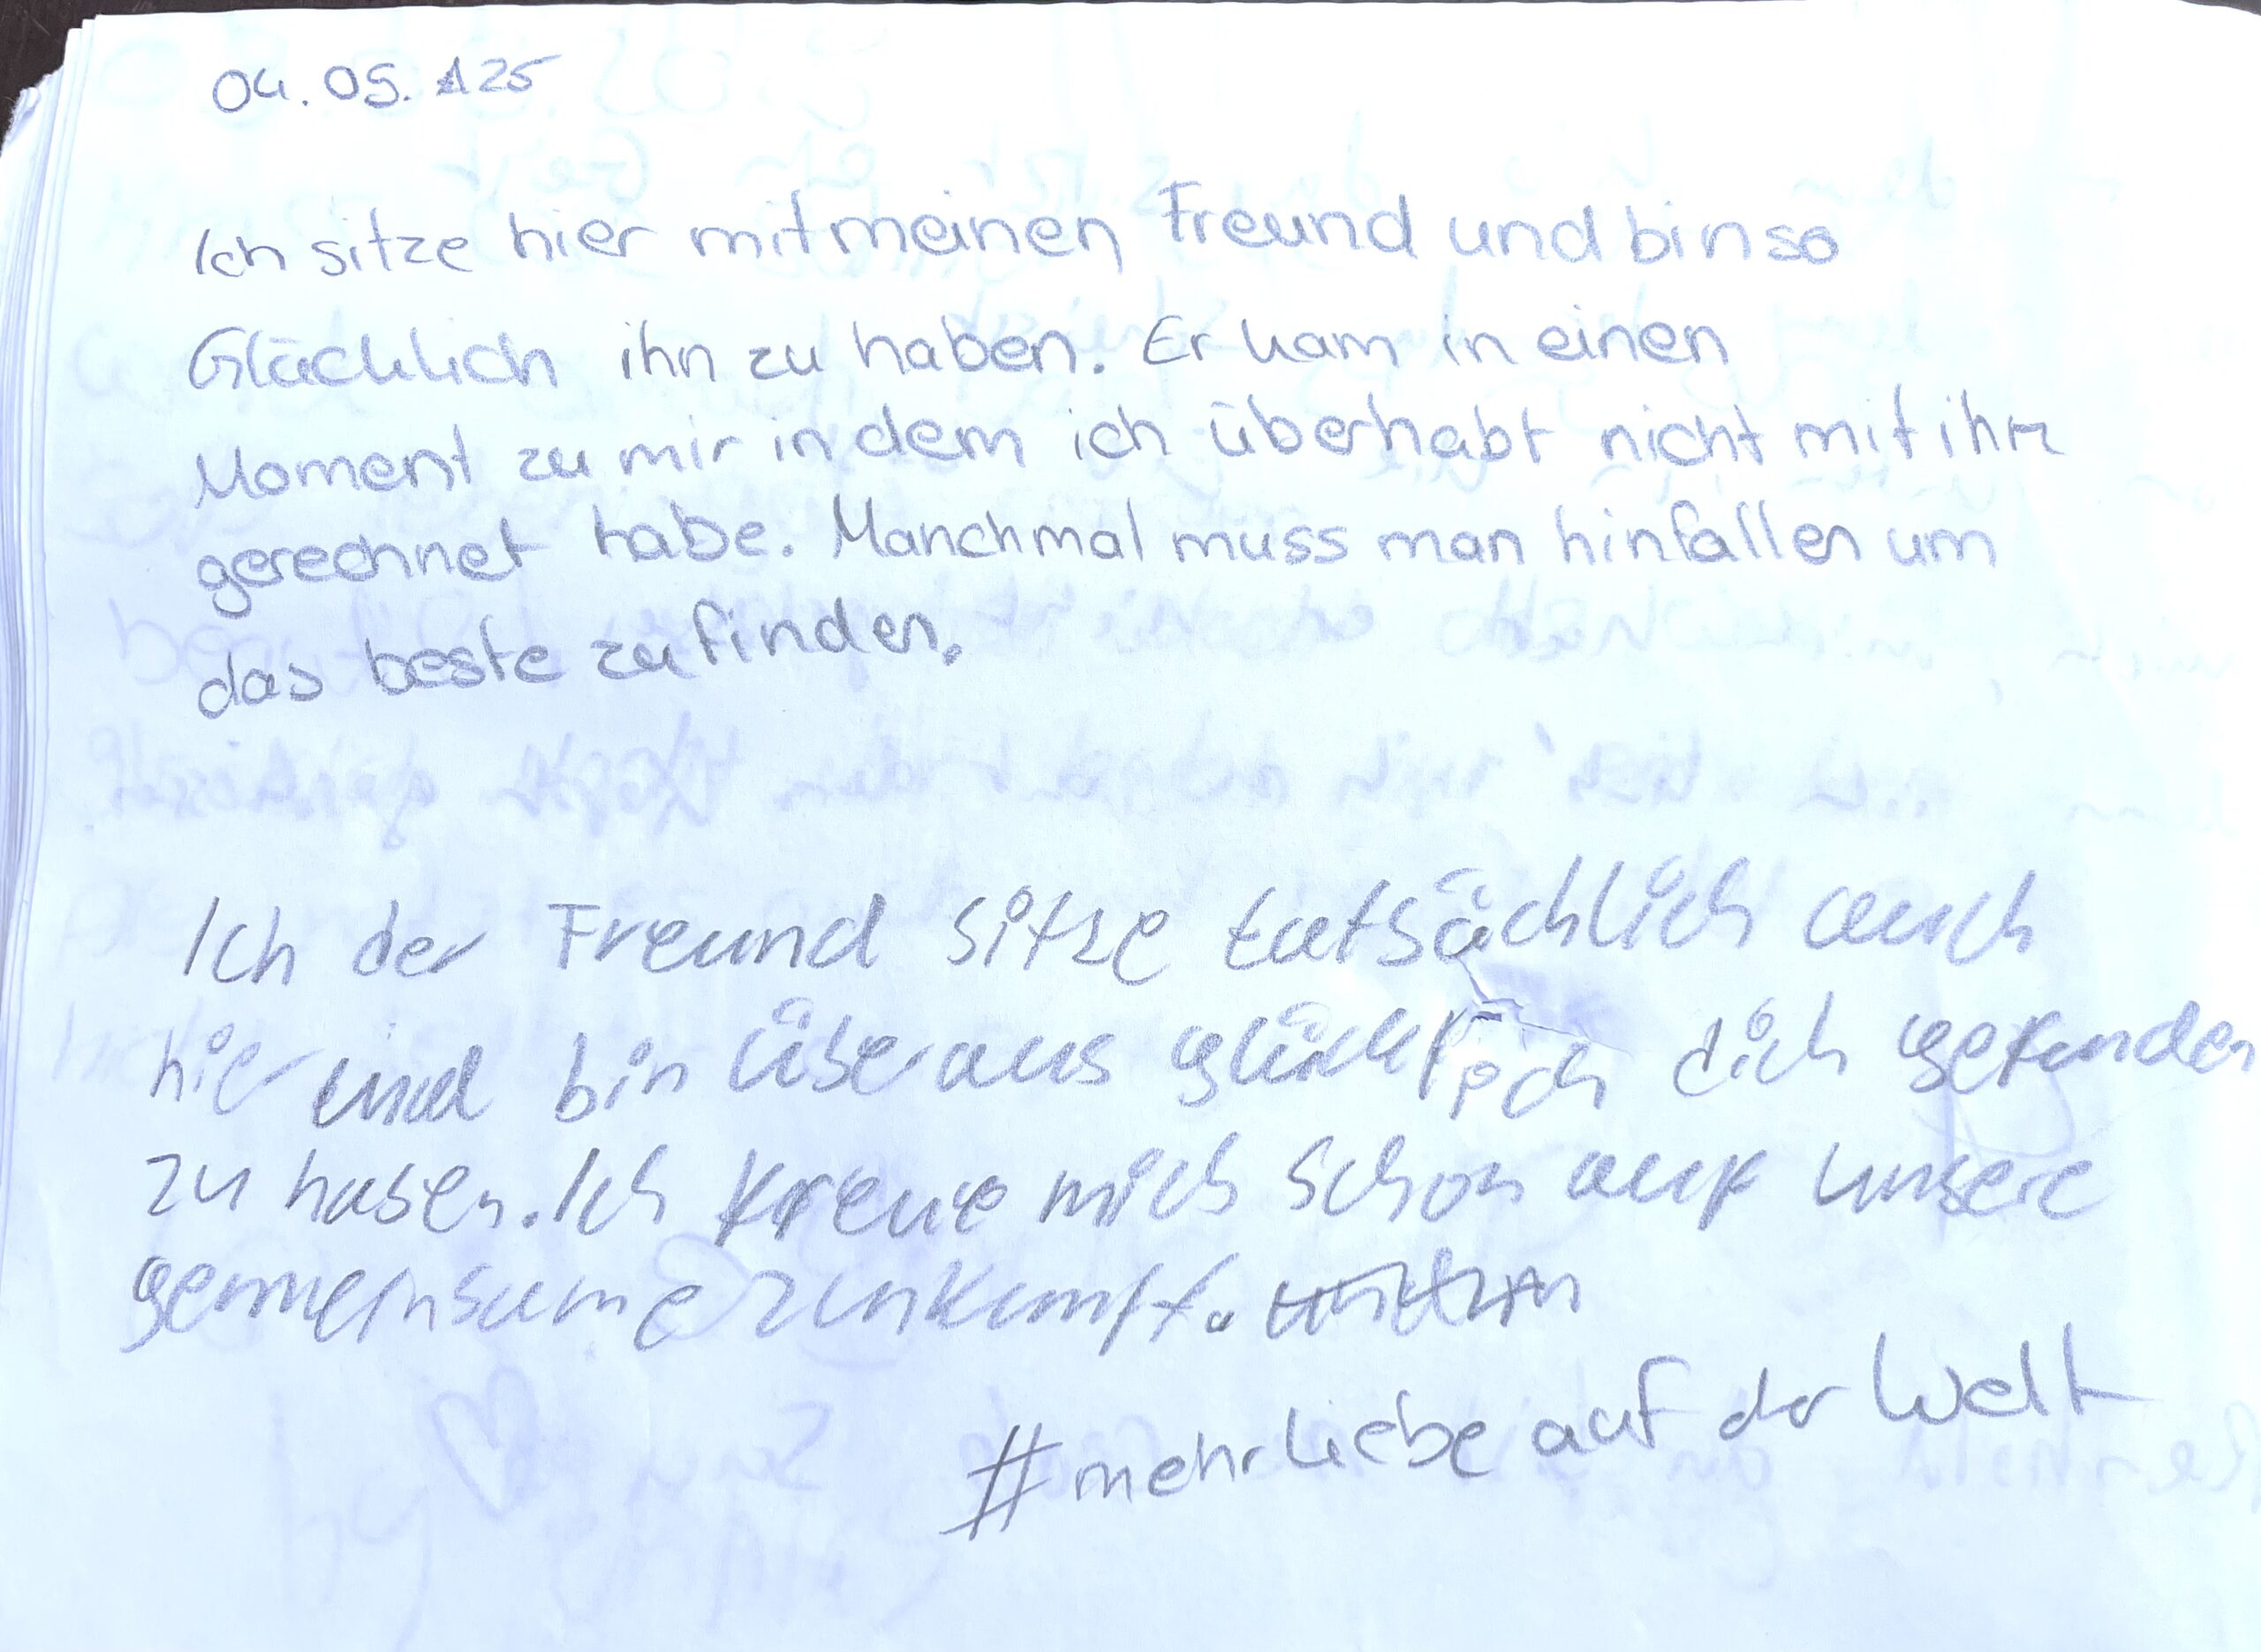 04.05.25
Ich sitze hier mit meinen Freund und bin so
Glücklich ihn zu haben. Er kam in einen
Moment zu mir in dem ich überhabt nicht mit ihm
gerechnet habe. Manchmal muss man hinfallen um
das beste zu finden.
Ich der Freund sitze tatsächlich auch
hier und bin überaus glücklich dich gefunden
zu haben. Ich freue mich schon auf unsere
gemeinsame Zunkunft.
#mehr Liebe auf der Welt